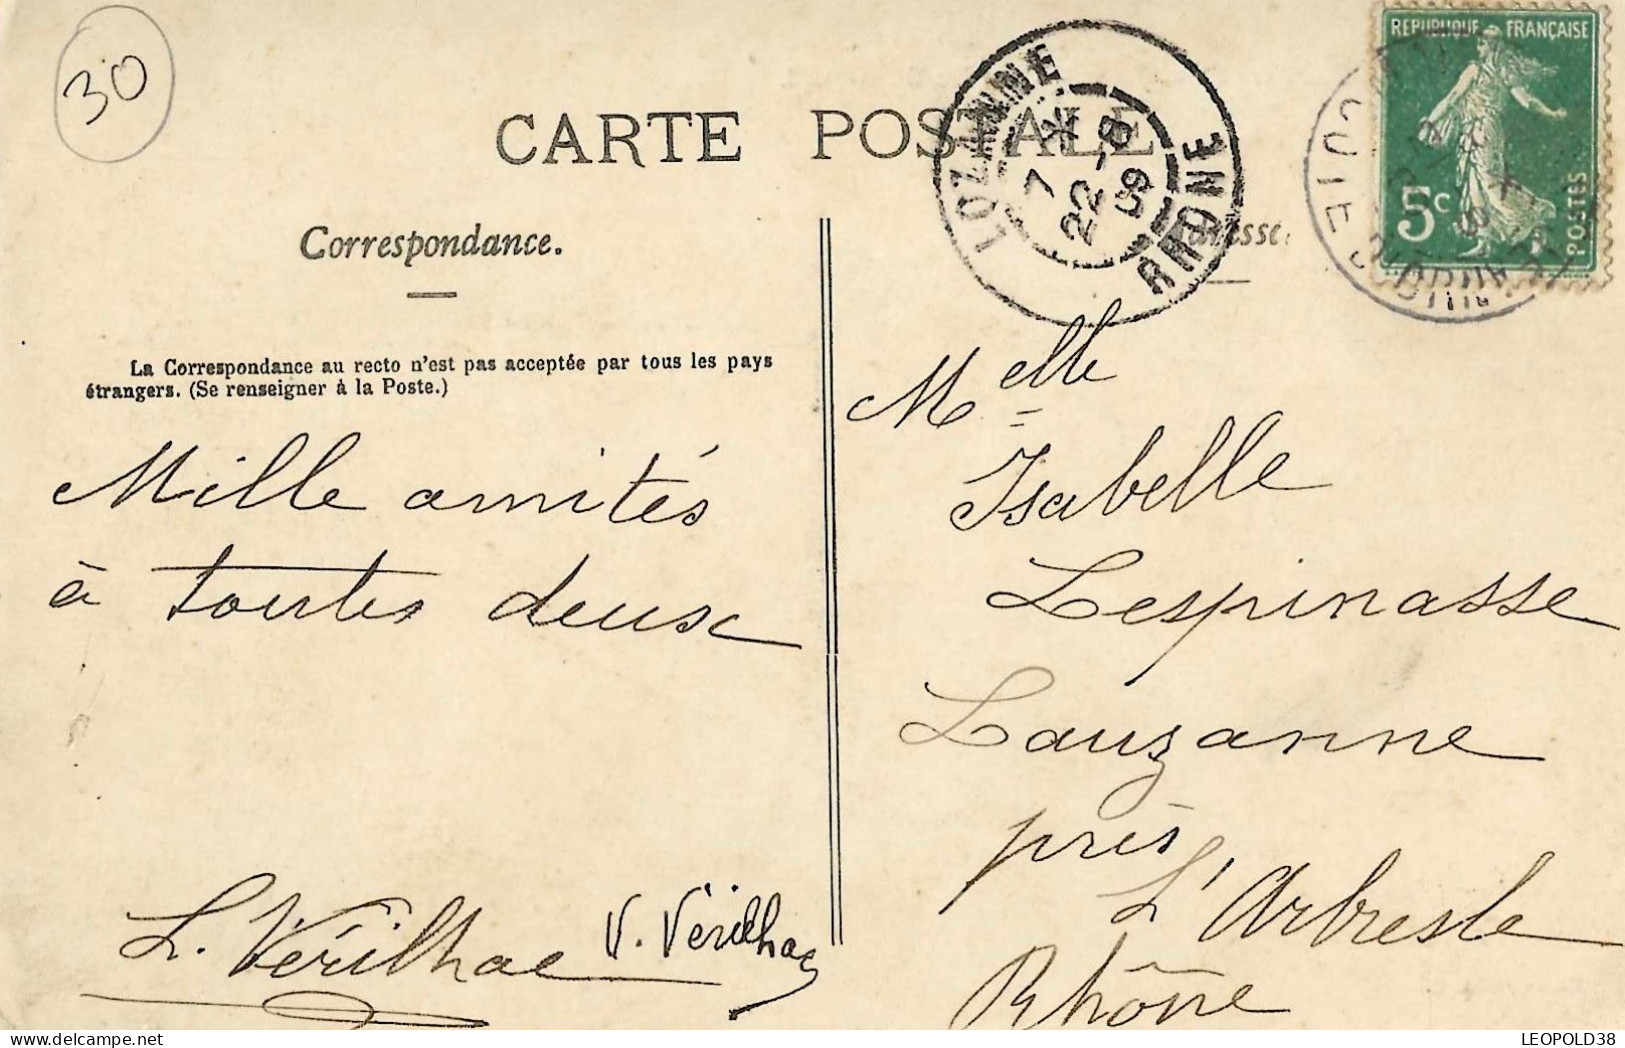 30
CARTE POSTALE
RÉPUBLIQUE FRANÇAISE
5c
POSTES
LOZANNE
7 * 22 -8 09
RHONE
Correspondance.
Adresse.
La Correspondance au recto n'est pas acceptée par tous les pays
étrangers. (Se renseigner à la Poste.)
Mille amitiés
à toutes deux
L. Vérilhac
V. Vérilhac
Melle
Isabelle
Lespinasse
Lauzanne
près
L'Arbresle
Rhône
LEOPOLD38